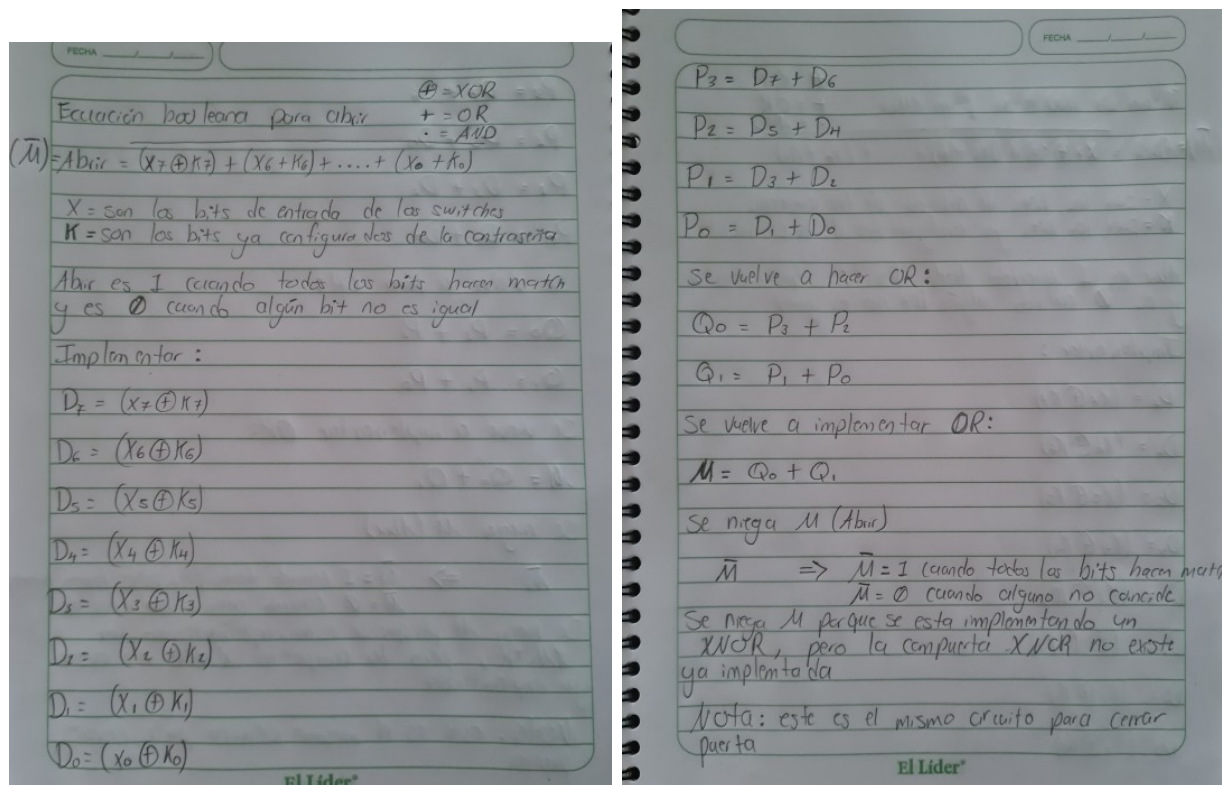 FECHA
⊕ = XOR
Ecuación booleana para abrir + = OR
· = AND
(M̅) = Abrir = (X7 ⊕ K7) + (X6 + K6) + .... + (X0 + K0)
X = son los bits de entrada de los switches
K = son los bits ya configurados de la contraseña
Abrir es 1 cuando todos los bits hacen match
y es 0 cuando algún bit no es igual
Implementar:
D7 = (X7 ⊕ K7)
D6 = (X6 ⊕ K6)
D5 = (X5 ⊕ K5)
D4 = (X4 ⊕ K4)
D3 = (X3 ⊕ K3)
D2 = (X2 ⊕ K2)
D1 = (X1 ⊕ K1)
D0 = (X0 ⊕ K0)
El Líder®
FECHA
P3 = D7 + D6
P2 = D5 + D4
P1 = D3 + D2
P0 = D1 + D0
Se vuelve a hacer OR:
Q0 = P3 + P2
Q1 = P1 + P0
Se vuelve a implementar OR:
M = Q0 + Q1
Se niega M (Abrir)
M̅ => M̅ = 1 cuando todos los bits hacen match
M̅ = 0 cuando alguno no coincide
Se niega M porque se esta implementando un
XNOR, pero la compuerta XNOR no existe
ya implemtada
Nota: este es el mismo circuito para cerrar
puerta
El Líder®